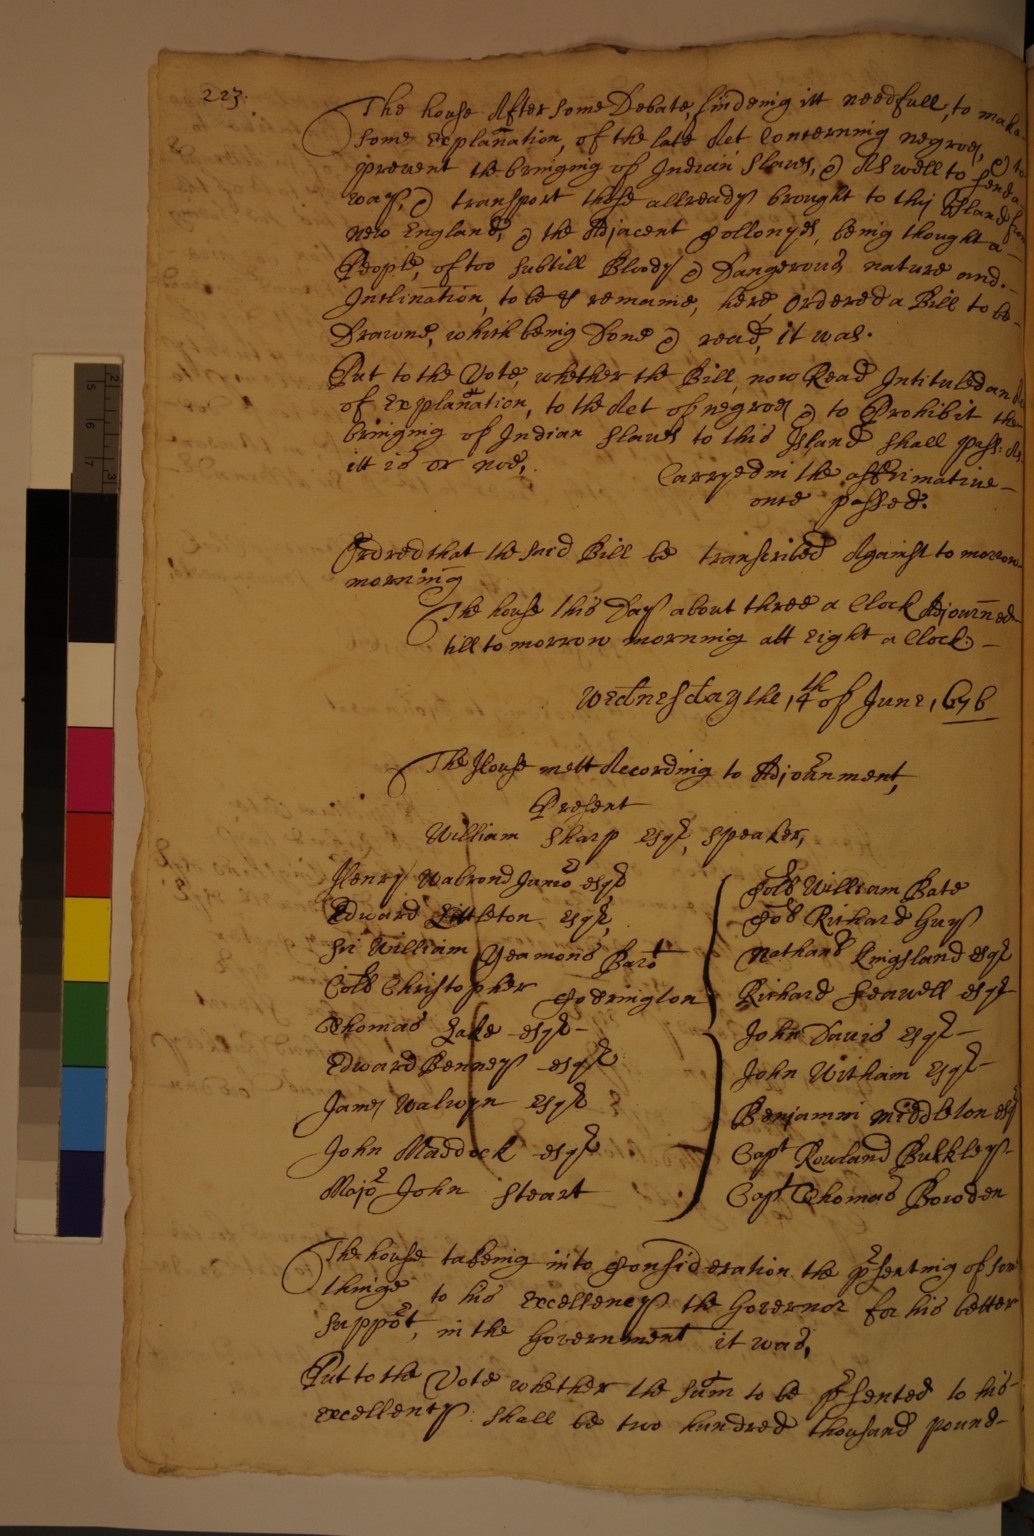 223:
The house After some Debate, findeing itt needfull, to make
some explanation, of the late Act Concerning negroes, & to
prevent the bringing of Indian slaves, & As well to send a
way, & transport those allready brought to this Island from
new England, & the Adjacent Collonyes, being thought a
People, of too subtill Bloody & Dangerous nature and
Inclination, to be & remaine, here, ordered a Bill to be
Drawne, which being Done & read, it was.
Put to the Vote, whether the Bill, now Read Intituled an Act
of Explanation, to the Act of negroes & to Prohibit the
bringing of Indian slaves to this Island shall pass: As
itt is or noe,
Carryed in the affirmative
once passed.
Ordred that the said Bill be transcribed Against to morrow
morning
The house this Day about three a Clock Adjourned
till to morrow morning att eight a Clock
Wednesday the, 14th of June, 676
The House mett According to Adjournment,
Present
William Sharp esqr, speaker,
Henry Walrond Junior esqr
Edward Littleton esqr,
Sir William Yeamons Barot
Collo Christopher Codrington
Thomas Lake esqr
Edward Benney esqr
James Walwyn esqr
John Maddock esqr
Major John Steart
Collo William Bate
Coll Richard Guy
Nathanl Kingsland esqr
Richard Seawell esqr
John Davis esqr
John Witham esqr
Benjamin Middleton esqr
Capt Rowland Bulkley
Capt Thomas Bowden
The house takeing into Consideration the presenting of som
thinge to his Excellency the Governor for his better
support, in the Government it was,
Put to the Vote whether the sum to be presented to his
excellency shall be two hundred thousand pound